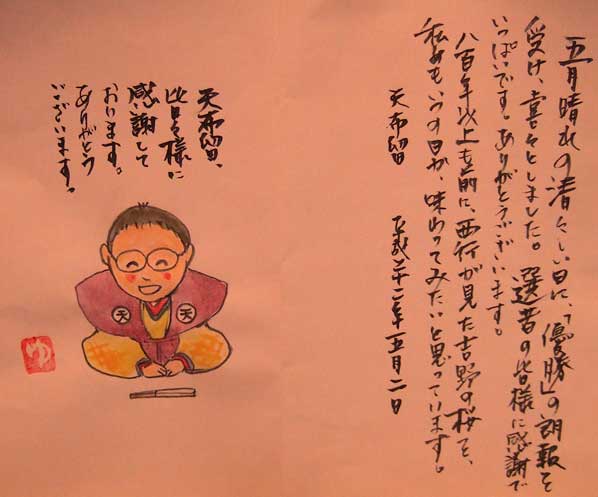 五月晴れの清々しい日に、「優勝」の朗報を
受け、喜々としました。選者の皆様に感謝で
いっぱいです。ありがとうございます。
八百年以上も前に、西行が見た吉野の桜を、
私めもいつの日か、味わってみたいと思っています。
天布留 平成二十二年五月二日
天布留、
皆々様に
感謝して
おります。
ありがとう
ございます。
天 天
ゆ